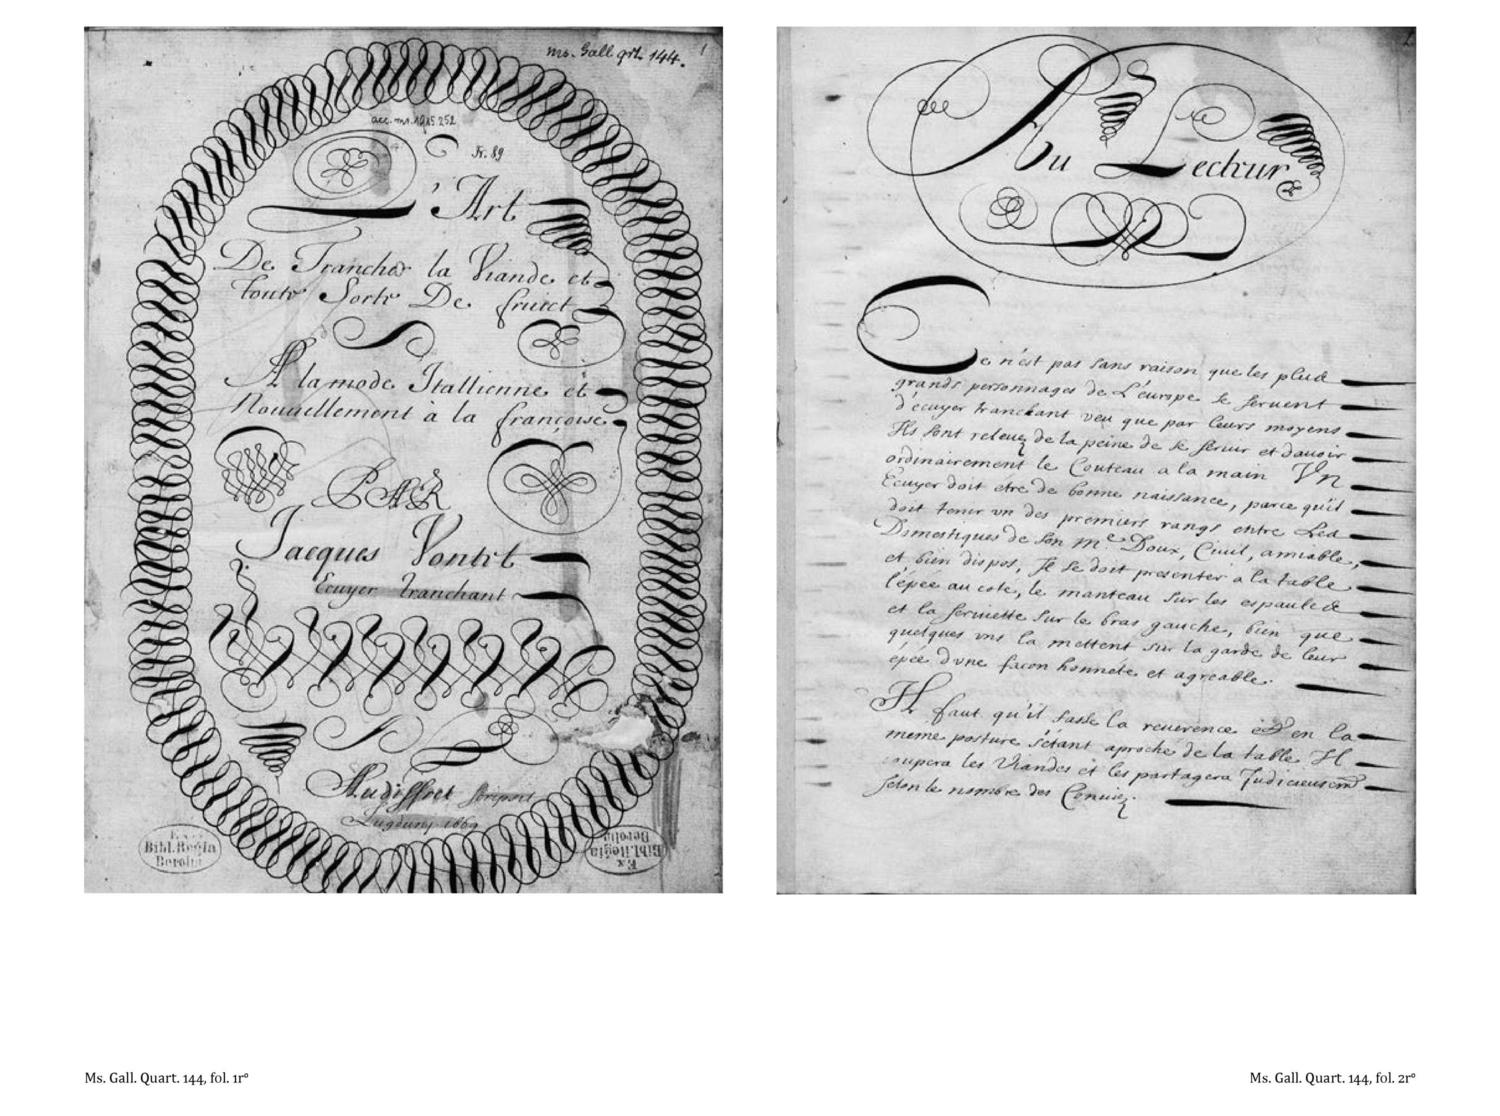 ms. Gall qrt. 144.
1
acc. ms. 1915.252
Fr. 89
L'Art
De Trancher la Viande et
toute Sorte De fruict
A la mode Itallienne et
Nouuellement à la françoise
PAR
Jacques Vontet
Ecuyer tranchant
Audiffret scripsit
Lugduni 1669
Ex
Bibl. Regia
Berolin
Ex
Bibl. Regia
Berolin
Au Lecteur
Ce n'est pas sans raison que les plus
grands personnages de L'europe se seruent
d'ecuyer tranchant veu que par leurs moyens
Ils sont releuez de la peine de se seruir et dauoir
ordinairement le Couteau a la main Vn
Ecuyer doit etre de bonne naissance, parce qu'il
doit tenir vn des premiers rangs entre Les
Domestiques de son me. Doux, Ciuil, amiable,
et bien dispos, Il se doit presenter a la table
l'epée au coté, le manteau sur les espaules
et la seruiette sur le bras gauche, bien que
quelques vns la mettent sur la garde de leur
épée d'vne facon honnete et agreable.
Il faut qu'il fasse la reuerence et en la
meme posture s'étant aproché de la table Il
coupera les Viandes et les partagera Judicieusemt
selon le nombre des Conuiez.
Ms. Gall. Quart. 144, fol. 1rº
Ms. Gall. Quart. 144, fol. 2rº